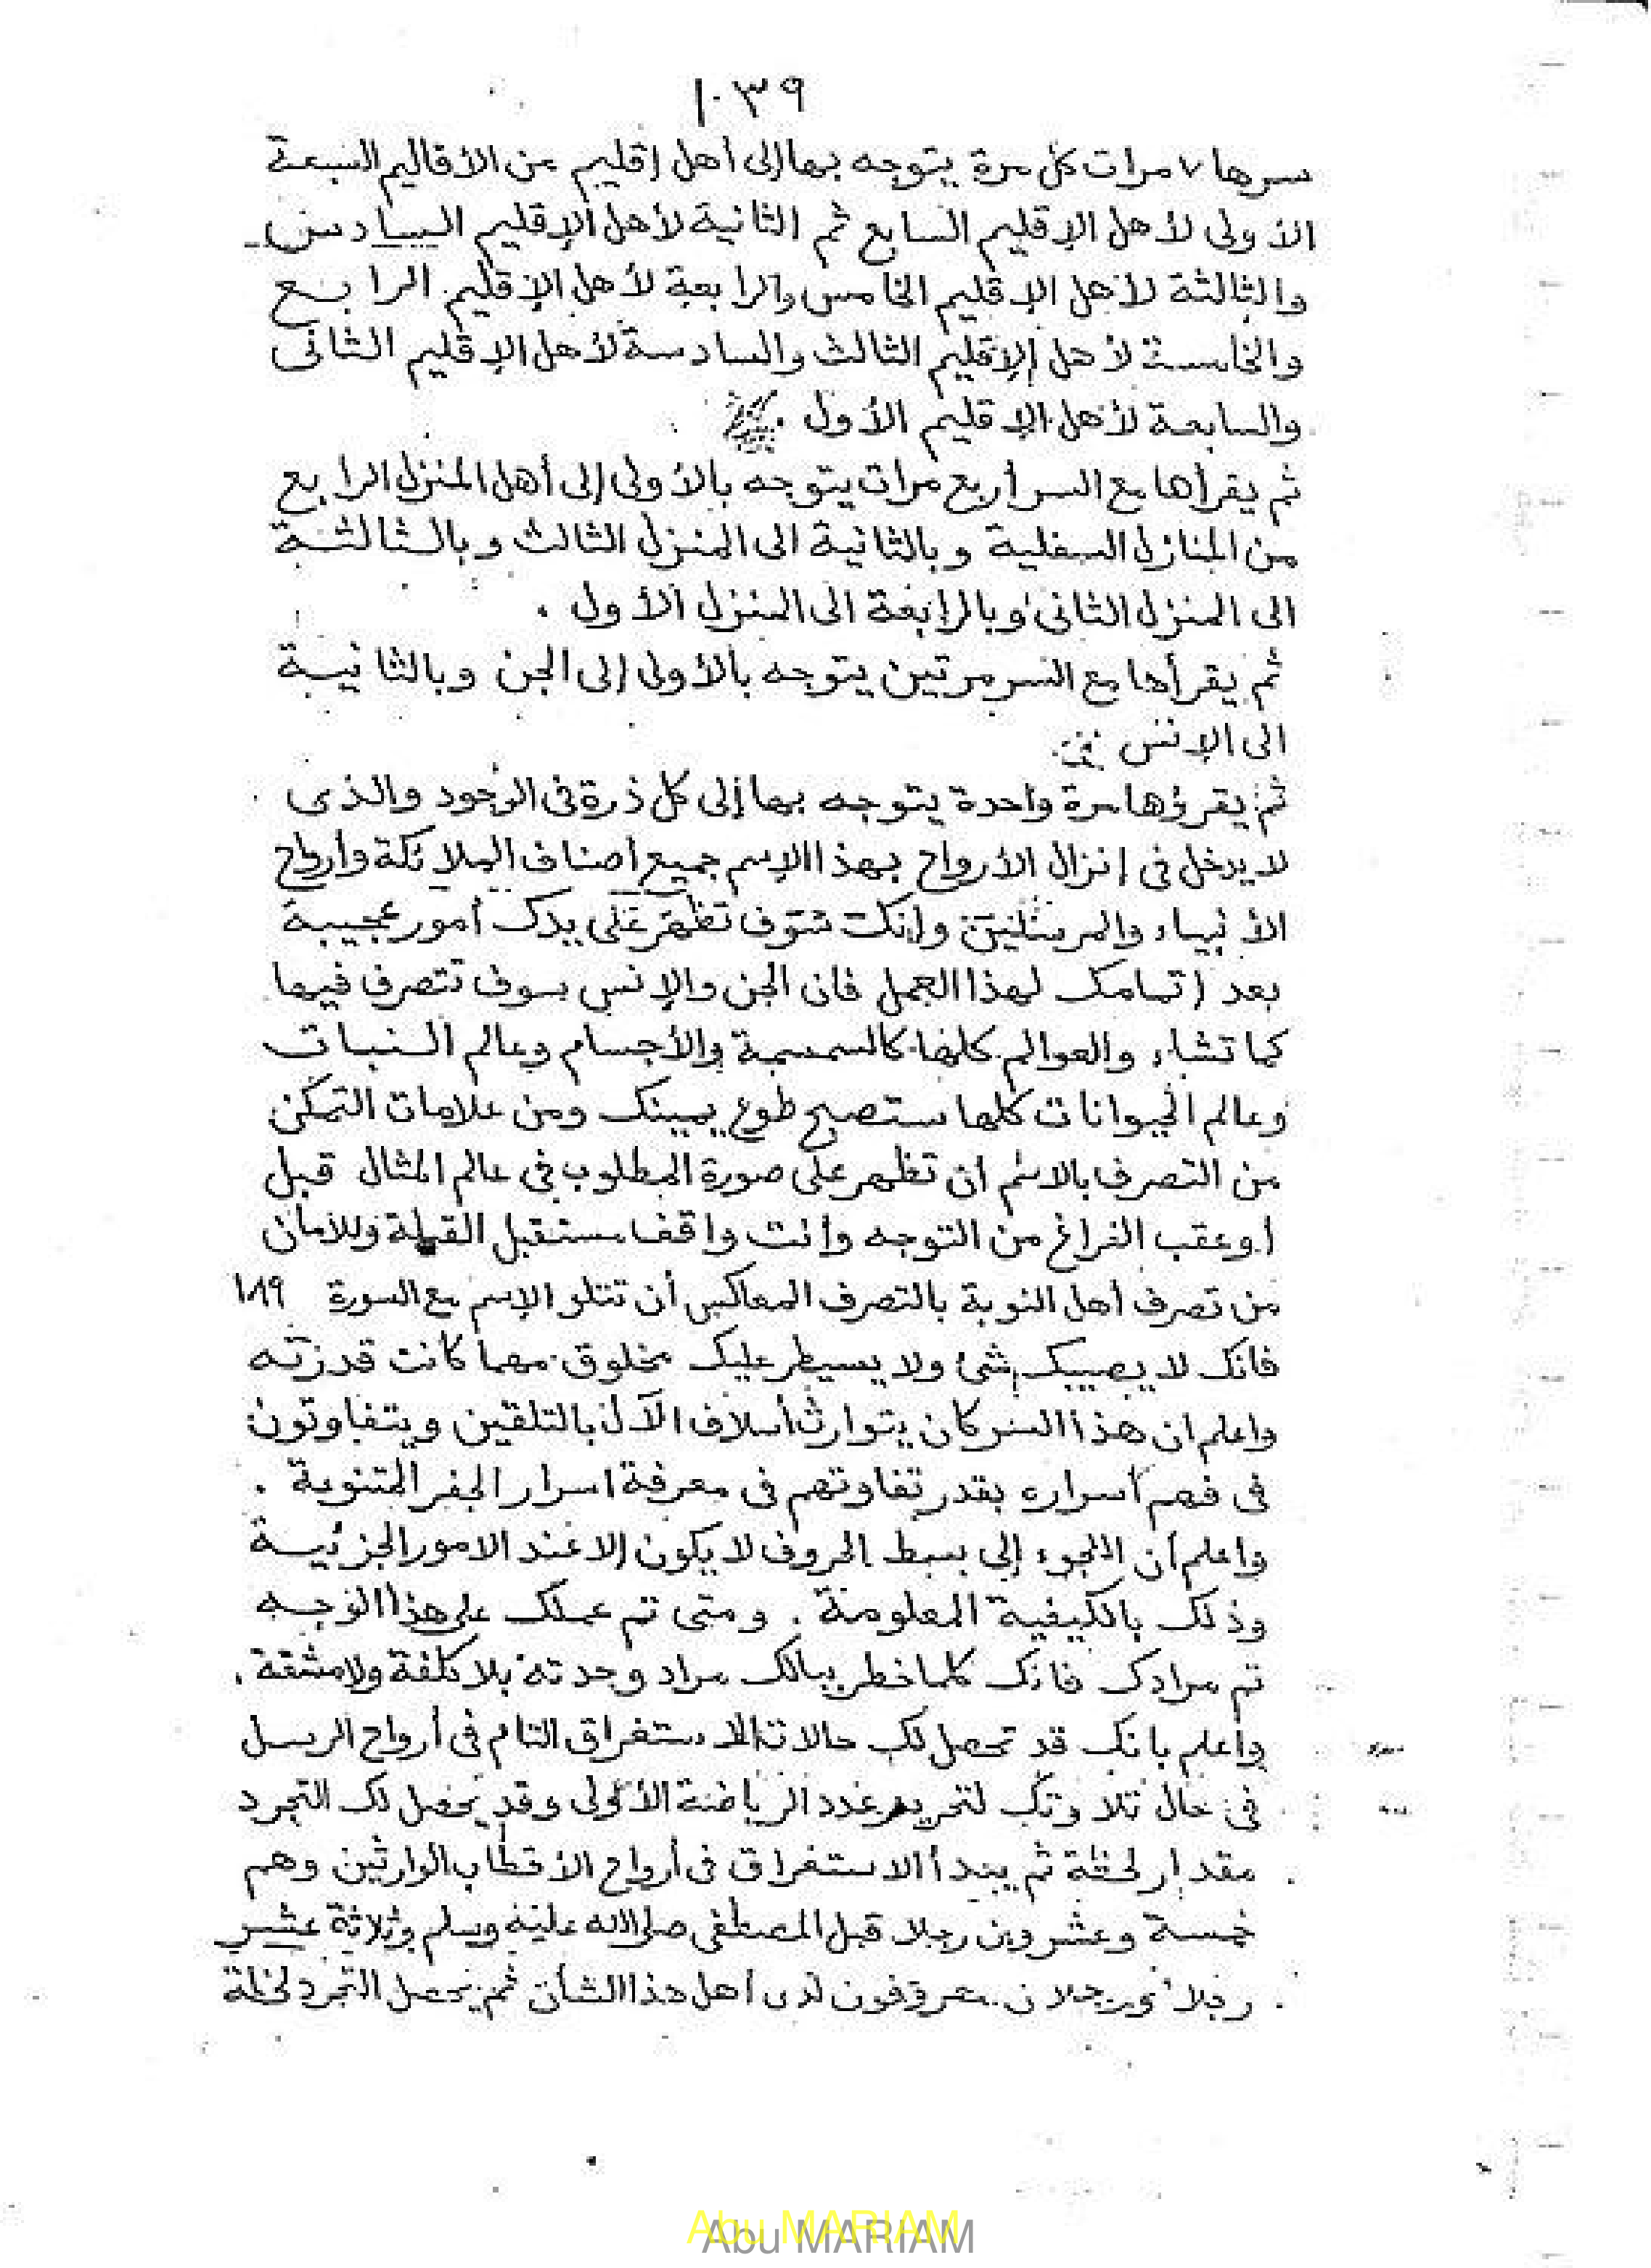 ١٠٣٩
سرها ٧ مرات كل مرة يتوجه بها إلى أهل إقليم من الأقاليم السبعة
الأولى لأهل الإقليم السابع ثم الثانية لأهل الإقليم السادس
والثالثة لأهل الإقليم الخامس والرابعة لأهل الإقليم الرابع
والخامسة لأهل الإقليم الثالث والسادسة لأهل الإقليم الثانى
والسابعة لأهل الإقليم الأول .
ثم يقرأها مع السر أربع مرات يتوجه بالأولى إلى أهل المنزل الرابع
من المنازل السفلية وبالثانية الى المنزل الثالث وبالثالثة
الى المنزل الثانى وبالرابعة الى المنزل الأول .
ثم يقرأها مع السر مرتين يتوجه بالأولى إلى الجن وبالثانية
الى الإنس
ثم يقرؤها مرة واحدة يتوجه بها إلى كل ذرة فى الوجود والذى
لا يدخل فى إنزال الأرواح بهذا الإسم جميع أصناف الملائكة وأرواح
الأنبياء والمرسلين وإنك سوف تظهر على يدك أمور عجيبة
بعد إتمامك لهذا العمل فان الجن والإنس سوف تتصرف فيها
كما تشاء والعوالم كلها كالسمسمة والأجسام وعالم النبات
وعالم الحيوانات كلها ستصبح طوع يمينك ومن علامات التمكن
من التصرف بالاسم ان تظهر على صورة المطلوب فى عالم المثال قبل
أو عقب الفراغ من التوجه وإنت واقفا مستقبل القبلة وللأمان
من تصرف أهل النوبة بالتصرف المعاكس أن تتلو الإسم مع السورة ١٨٩
فانك لا يصيبك شئ ولا يسيطر عليك مخلوق مهما كانت قدرته
واعلم ان هذا السر كان يتوارث أسلاف الآل بالتلقين ويتفاوتون
فى فهم أسراره بقدر تفاوتهم فى معرفة اسرار الجفر
واعلم أن اللجوء إلى بسط الحروف لا يكون إلا عند الامور الجزئية
وذلك بالكيفية المعلومة . ومتى تم عملك على هذا الوجه
تم مرادك فانك كلما خطر ببالك مراد وجدته بلا كلفة ولا مشقة .
وأعلم بانك قد تحصل لك حالات الاستغراق التام فى أرواح الرسل
فى حال تلاوتك عدد الرياضة الأولى وقد يحصل لك التجرد
مقدار لحظة ثم يبدأ الاستغراق فى أرواح الأقطاب الوارثين وهم
خمسة وعشرون رجلا قبل المصطفى صلى الله عليه وسلم وثلاثة عشر
رجلا ورجلان معروفون لدى أهل هذا الشأن ثم يحصل التجرد لحظة
Abu MARIAM